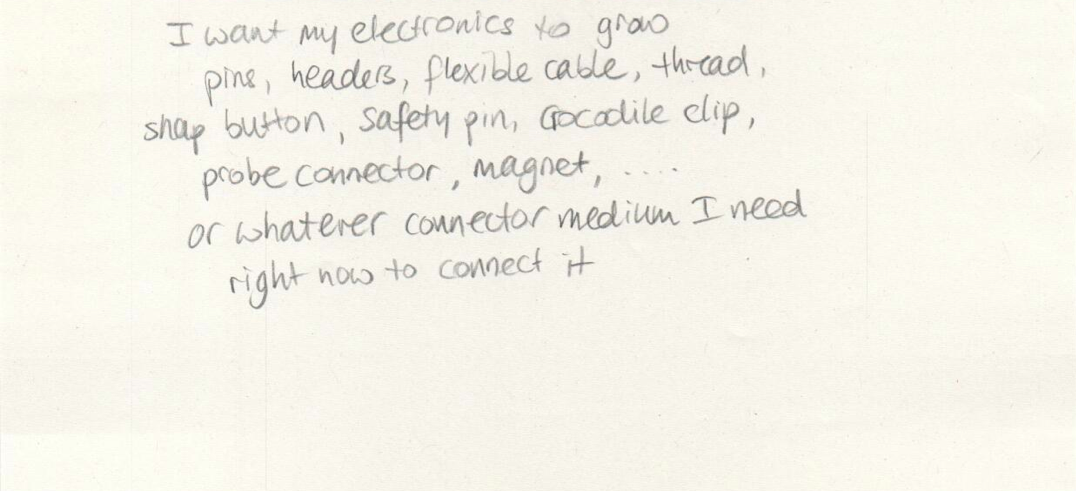 I want my electronics to grow
pins, headers, flexible cable, thread,
snap button, safety pin, crocodile clip,
probe connector, magnet, ....
or whatever connector medium I need
right now to connect it